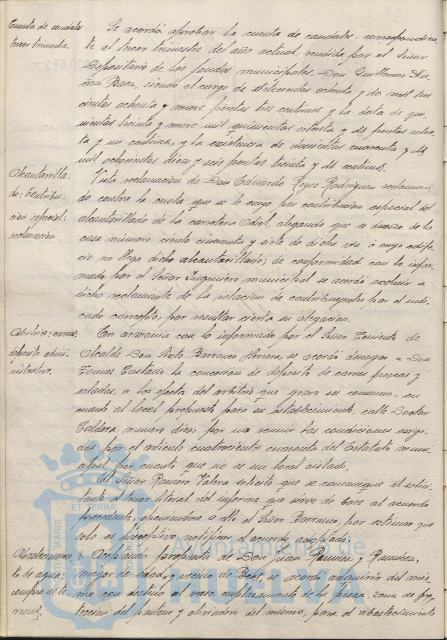 Cuenta de caudales
tercer trimestre.
Se acordó aprobar la cuenta de caudales correspondien
te al tercer trimestre del año actual, rendida por el Señor
Depositario de los fondos municipales Don Guillermo
Baez, siendo el cargo de setecientas ochenta y dos mil seis
cientas ochenta y nueve pesetas tres centimos y la data de qui
nientas treinta y nueve mil quinientas setenta y dos pesetas seten
ta y un centimos, y la existencia de doscientas cuarenta y dos
mil ochocientas diez y seis pesetas treinta y dos centimos.
Alcantarilla
do: Contribu-
cion especial:
reclamación
Vista reclamación de Don Eduardo Reyes Rodriguez reclaman
do contra la cuota que se le carga por contribucion especial del
alcantarillado de la carretera Odiel, alegando que es dueño de la
casa numero ciento cincuenta y siete de dicha via á cuyo edifi-
cio no llega dicho alcantarillado; de conformidad con lo infor-
mado por el Señor Ingeniero municipal se acordó excluir a
dicho reclamante de la relacion de contribuyentes por el indi-
cado concepto, por resultar cierta su alegacion.
carnes,
deposito admi-
nistrativo.
En armonia con lo informado por el Señor Teniente de
Alcalde Don Sixto Barranco Herrera, se acordó denegar a Don
Tomas Custodio la concesion de deposito de carnes frescas y
saladas, a los efectos del arbitrio que grava su consumo, en
cuanto al local propuesto para su establecimiento, calle Doctor
Caldera numero diez, por no reunir las condiciones exigi-
das por el articulo cuatrocientos cincuenta del Estatuto muni-
cipal, por cuanto que no es un local aislado.
El Señor Romero Valera solicitó que se comunique al solici-
tante el tenor literal del informe que sirve de base al acuerdo
precedente, oponiendose a ello el Señor Barranco, por estimar que
solo es preceptivo notificar el acuerdo adoptado.
Abastecimien
to de agua:
compra de te
rreno.
Aceptando propuesta de Don Juan Ramirez y Ramirez,
mayor de edad, y vecino de Beas, se acordó adquirir del mis-
mo con destino al vaso emplazamiento de la presa, zona de pro
teccion del pantano y aliviadero del mismo, para el abastecimiento